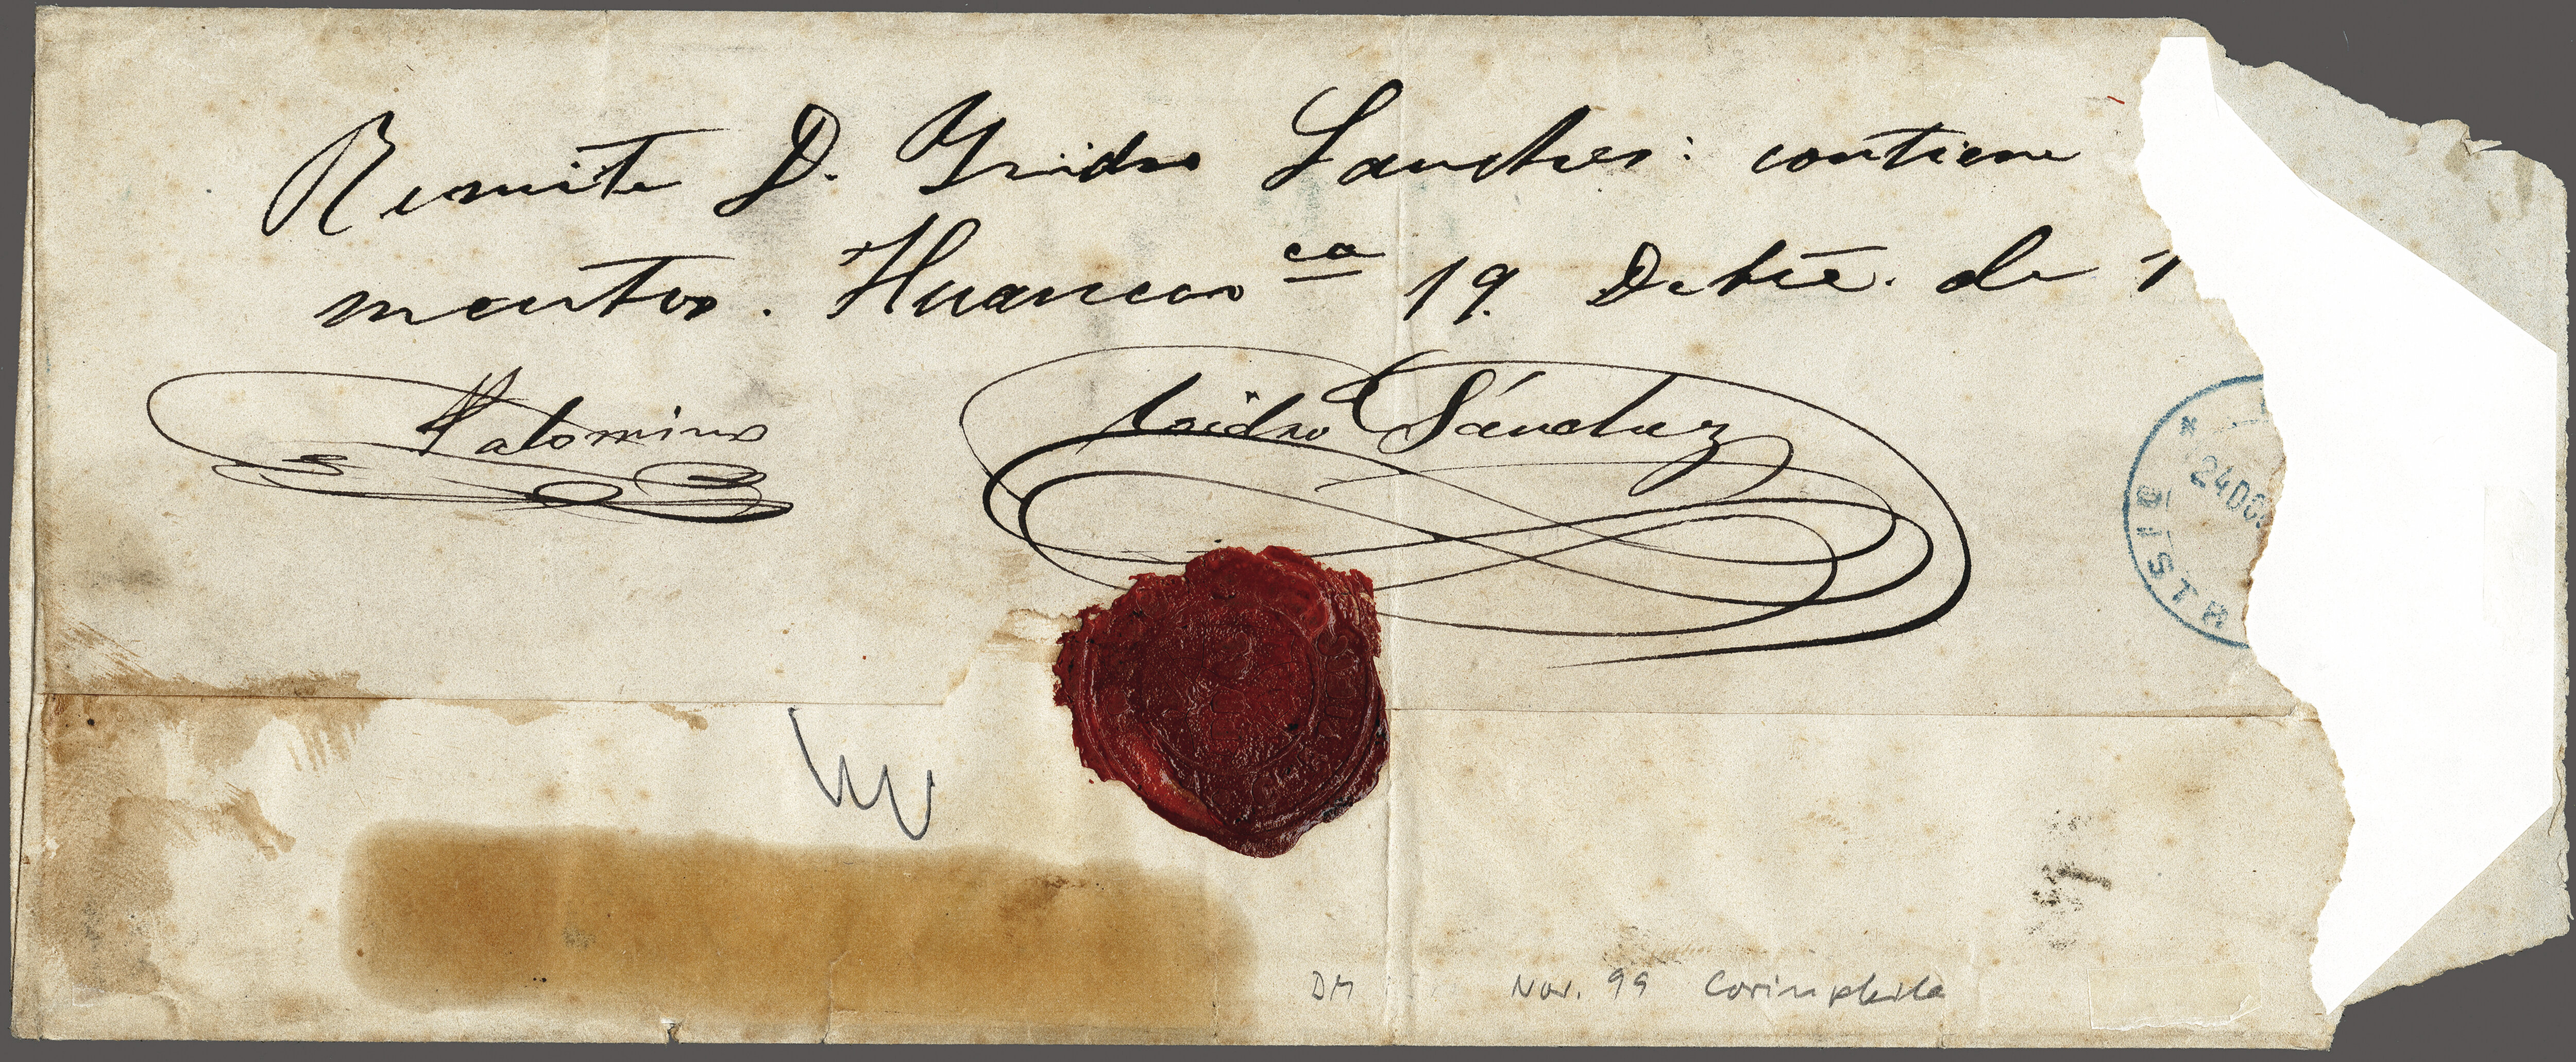 Remite D. Ysidro Sanches: contiene
mentos. Huancav ca 19. Dcbre. de 1
Palomino
Isidro Sánchez
24 DC
DM Nov. 99 Corinphila